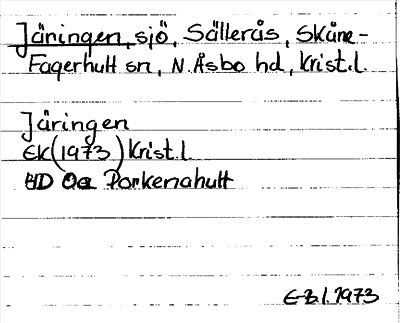 Järingen, sjö, Sällerås, Skåne-
Fagerhult sn, N. Åsbo hd, Krist.l.
Järingen
Ek (1973) Krist.l.
3D 0a Porkenahult
E.B.l. 1973